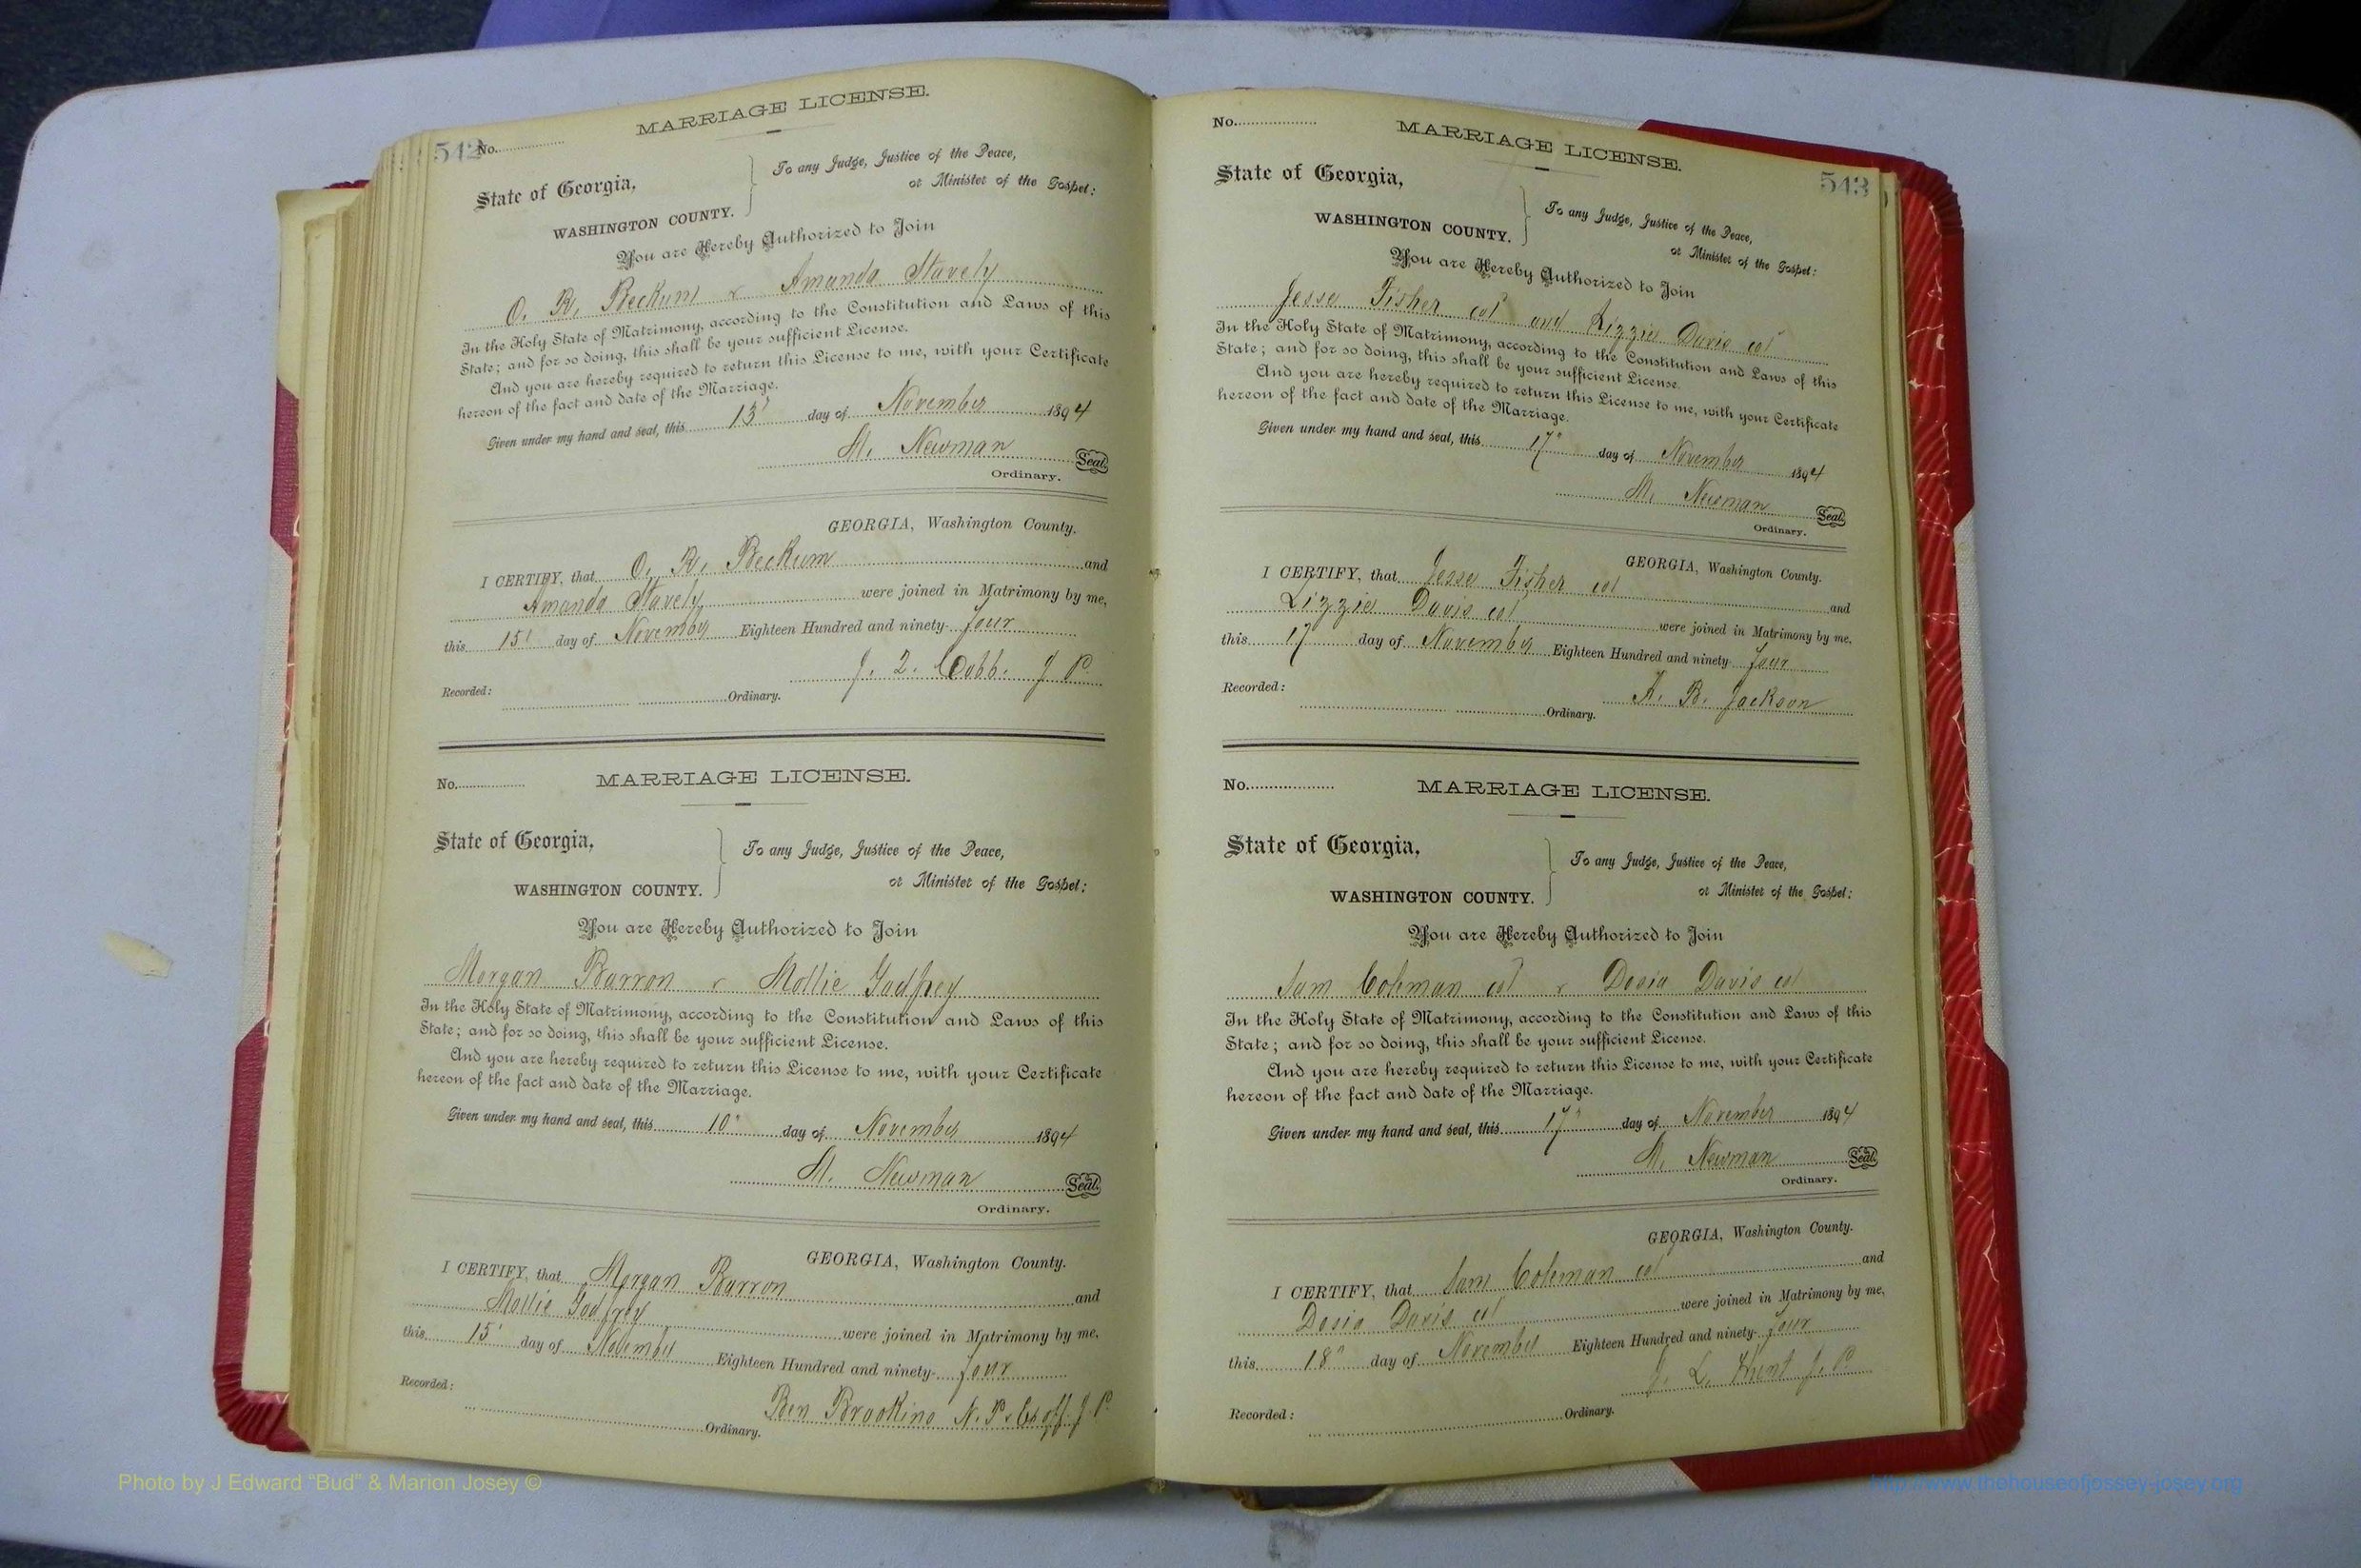 542
No.
MARRIAGE LICENSE.
State of Georgia,
WASHINGTON COUNTY.
To any Judge, Justice of the Peace,
or Minister of the Gospel:
You are Hereby Authorized to Join
O. R. Beckum & Amanda Stavely
In the Holy State of Matrimony, according to the Constitution and Laws of this
State; and for so doing, this shall be your sufficient License.
And you are hereby required to return this License to me, with your Certificate
hereon of the fact and date of the Marriage.
Given under my hand and seal, this 13" day of November 1894
M. Newman Seal.
Ordinary.
GEORGIA, Washington County.
I CERTIFY, that O. R. Beckum and
Amanda Stavely were joined in Matrimony by me,
this 15" day of November Eighteen Hundred and ninety-four
J. 2. Cobb. J P.
Recorded: Ordinary.
No. MARRIAGE LICENSE.
State of Georgia,
WASHINGTON COUNTY.
To any Judge, Justice of the Peace,
or Minister of the Gospel:
You are Hereby Authorized to Join
Morgan Barron & Mollie Godfrey
In the Holy State of Matrimony, according to the Constitution and Laws of this
State; and for so doing, this shall be your sufficient License.
And you are hereby required to return this License to me, with your Certificate
hereon of the fact and date of the Marriage.
Given under my hand and seal, this 10" day of November 1894
M. Newman Seal.
Ordinary.
GEORGIA, Washington County.
I CERTIFY, that Morgan Barron and
Mollie Godfrey were joined in Matrimony by me,
this 15' day of November Eighteen Hundred and ninety-four
Ben Brookins N. P. & Ex off. J P.
Recorded: Ordinary.
No.
MARRIAGE LICENSE.
543
State of Georgia,
WASHINGTON COUNTY.
To any Judge, Justice of the Peace,
or Minister of the Gospel:
You are Hereby Authorized to Join
Jesse Fisher col and Lizzie Davis col
In the Holy State of Matrimony, according to the Constitution and Laws of this
State; and for so doing, this shall be your sufficient License.
And you are hereby required to return this License to me, with your Certificate
hereon of the fact and date of the Marriage.
Given under my hand and seal, this 17" day of November 1894
M. Newman Seal.
Ordinary.
GEORGIA, Washington County.
I CERTIFY, that Jesse Fisher col and
Lizzie Davis col were joined in Matrimony by me,
this 17 day of November Eighteen Hundred and ninety-four
K. B. Jackson
Recorded: Ordinary.
No. MARRIAGE LICENSE.
State of Georgia,
WASHINGTON COUNTY.
To any Judge, Justice of the Peace,
or Minister of the Gospel:
You are Hereby Authorized to Join
Sam Coleman col & Dosia Davis col
In the Holy State of Matrimony, according to the Constitution and Laws of this
State; and for so doing, this shall be your sufficient License.
And you are hereby required to return this License to me, with your Certificate
hereon of the fact and date of the Marriage.
Given under my hand and seal, this 17" day of November 1894
M. Newman Seal.
Ordinary.
GEORGIA, Washington County.
I CERTIFY, that Sam Coleman col and
Dosia Davis col were joined in Matrimony by me,
this 18" day of November Eighteen Hundred and ninety-four
J. L. Hunt J. P.
Recorded: Ordinary.
Photo by J Edward “Bud” & Marion Josey ©
http://www.thehouseofjossey-josey.org